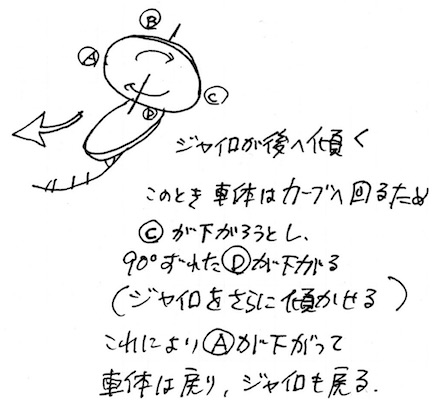 Ⓑ
Ⓐ
Ⓒ
Ⓓ
ジャイロが後へ傾く
このとき車体はカーブへ回るため
Ⓒが下がろうとし、
90°ずれたⒹが下がる
(ジャイロをさらに傾かせる)
これによりⒶが下がって
車体は戻り、ジャイロも戻る.